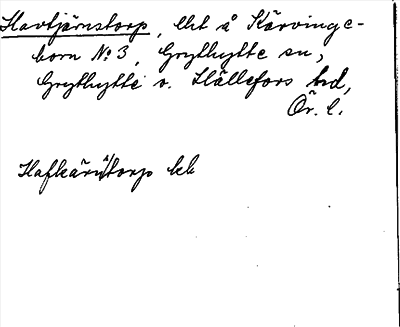 Havtjärnstorp, lht å Kärvinge-
born No 3, Grythytte sn,
Grythytte o. Hällefors hd,
Ör. l.
Hafkärnstorp kk